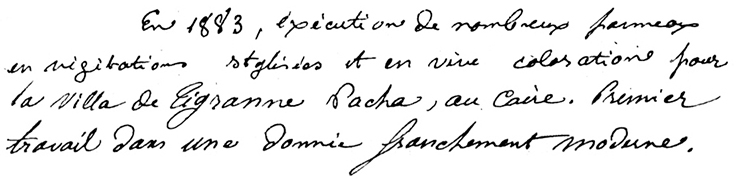 En 1883, éxécution de nombreux panneaux
en végétations stylisées et en vive coloration pour
la Villa de Tigranne Pacha, au Caire. Premier
travail dans une donnée franchement moderne.